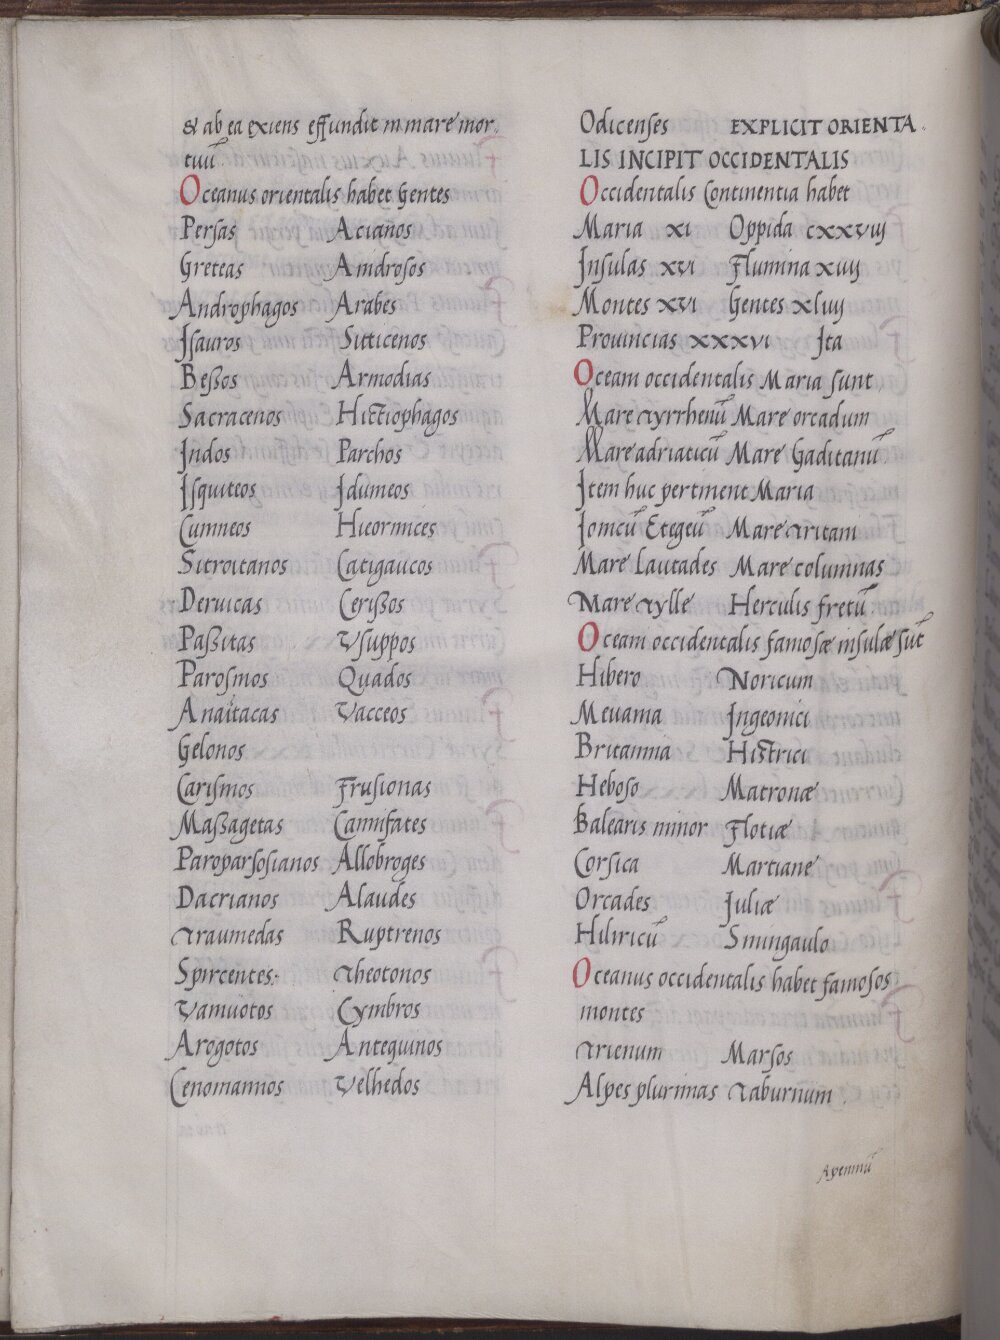 & ab ea exiens effundit in mare mor-
tuū
Oceanus orientalis habet Gentes
Persas Acianos
Greteas Androsos
Androphagos Arabes
Isauros Sitticenos
Beßos Armodias
Sacracenos Hictiophagos
Indos Parchos
Isquiteos Idumeos
Cumneos Hieormices
Sitroitanos Catigaucos
Deruicas Cerißos
Paßitas Vsuppos
Parosmos Quados
Anaitacas Vacceos
Gelonos
Carismos Frusionas
Maßagetas Cannifates
Paroparsosianos Allobroges
Dacrianos Alaudes
Traumedas Ruptrenos
Spircentes Theotonos
Vamuotos Cymbros
Arogotos Antequinos
Cenomannos Velhedos
Odicenses EXPLICIT ORIENTA
LIS INCIPIT OCCIDENTALIS
Occidentalis Continentia habet
Maria xi Oppida cxxviij
Insulas xvi Flumina xiiij
Montes xvi Gentes xliiij
Prouincias xxxvi Ita
Oceani occidentalis Maria sunt
Mare Tyrrhenū Mare orcadum
Mare adriaticū Mare Gaditanū
Item huc pertinent Maria
Ionicū Etegeū Mare Tritam
Mare Lautades Mare columnas
Mare Tylle Herculis fretū
Oceani occidentalis famosæ insulæ sūt
Hibero Noricum
Meuania Ingeonici
Britannia Histrici
Heboso Matronæ
Balearis minor Flotiæ
Corsica Martiane
Orcades Juliæ
Hiliricū Smingaulo
Oceanus occidentalis habet famosos
montes
Trienum Marsos
Alpes plurimas Taburnum.
Apeninū